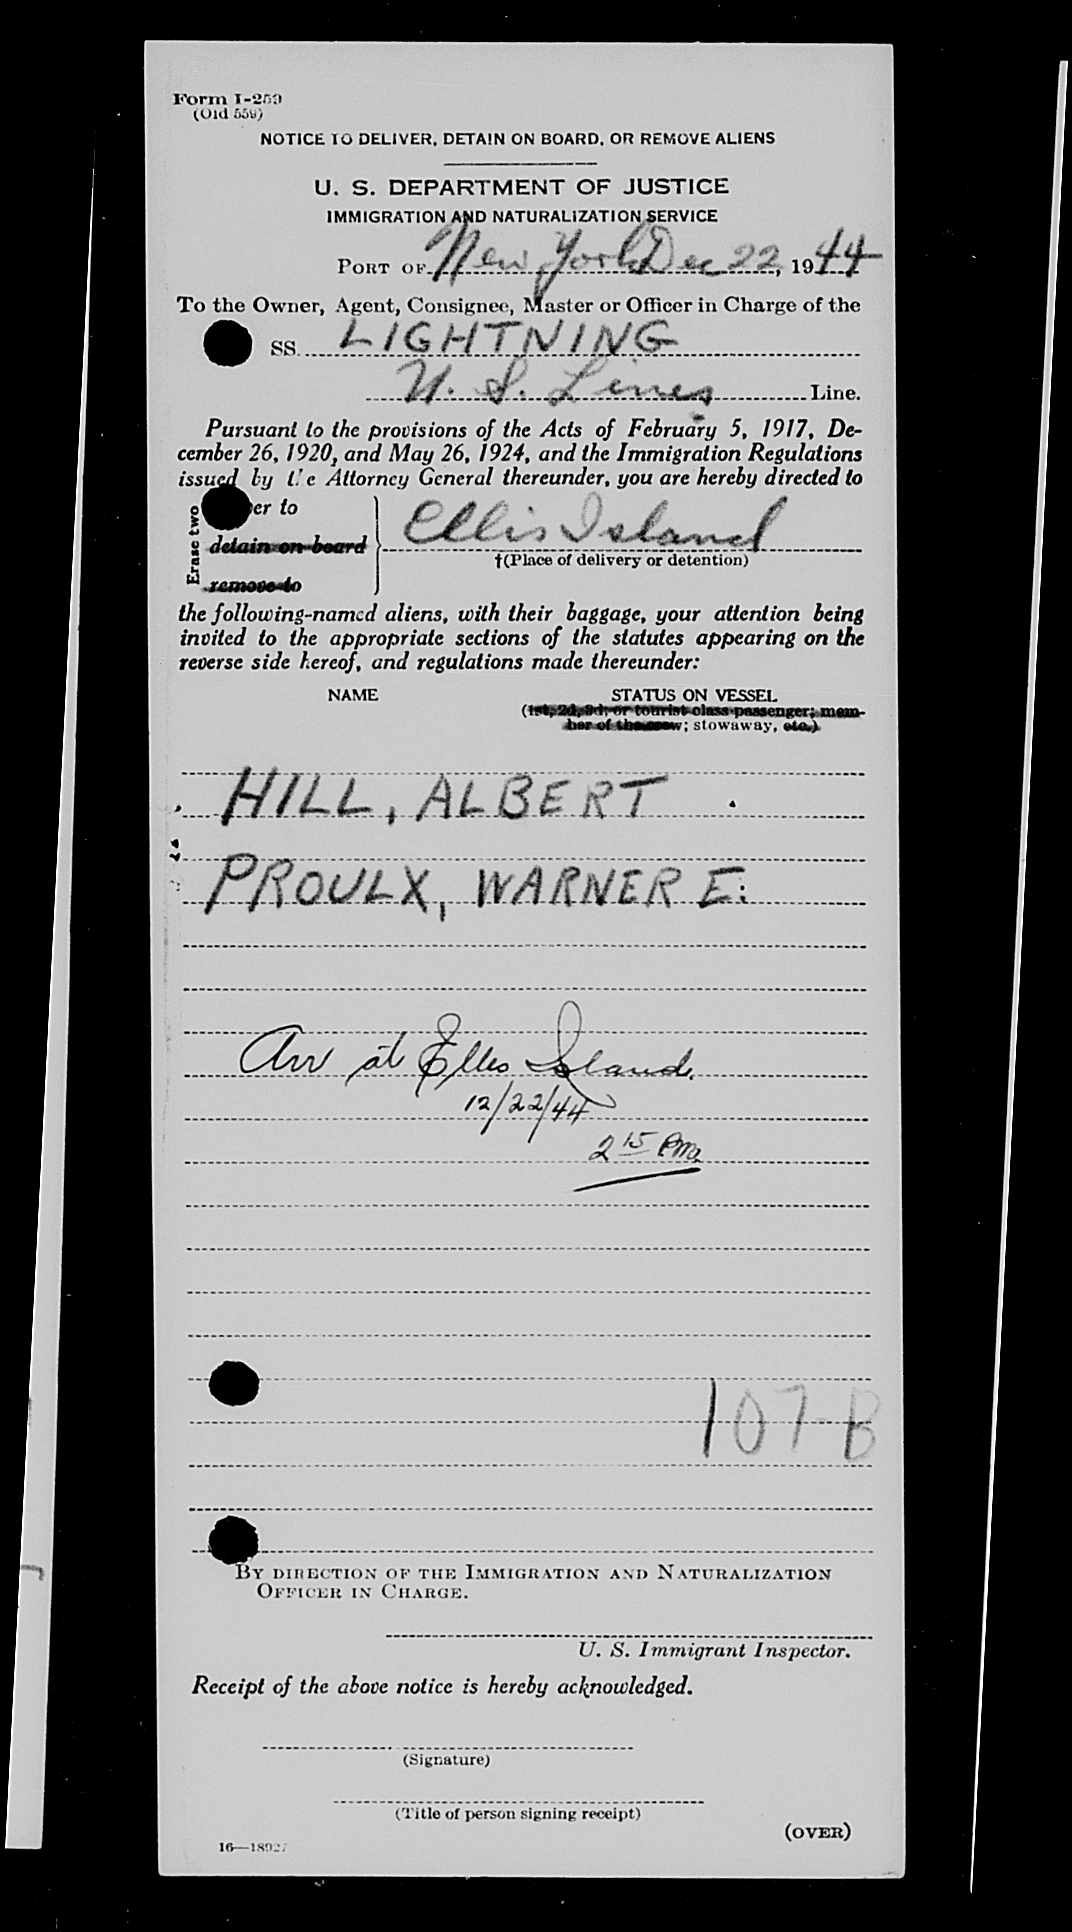 Form I-259
(Old 559)
NOTICE TO DELIVER, DETAIN ON BOARD, OR REMOVE ALIENS
U. S. DEPARTMENT OF JUSTICE
IMMIGRATION AND NATURALIZATION SERVICE
PORT OF New York Dec 22, 1944
To the Owner, Agent, Consignee, Master or Officer in Charge of the
SS. LIGHTNING
U. S. Lines Line.
Pursuant to the provisions of the Acts of February 5, 1917, De-
cember 26, 1920, and May 26, 1924, and the Immigration Regulations
issued by the Attorney General thereunder, you are hereby directed to
Erase two
er to
detain on board
remove to
Ellis Island
†(Place of delivery or detention)
the following-named aliens, with their baggage, your attention being
invited to the appropriate sections of the statutes appearing on the
reverse side hereof, and regulations made thereunder:
NAME STATUS ON VESSEL
(1st, 2d, 3d, or tourist class passenger; mem-
ber of the crew; stowaway, etc.)
HILL, ALBERT
PROULX, WARNER E.
Arr at Ellis Island
12/22/44
2 15 Pm
107-B
BY DIRECTION OF THE IMMIGRATION AND NATURALIZATION
OFFICER IN CHARGE.
U. S. Immigrant Inspector.
Receipt of the above notice is hereby acknowledged.
(Signature)
(Title of person signing receipt)
(OVER)
16—18927